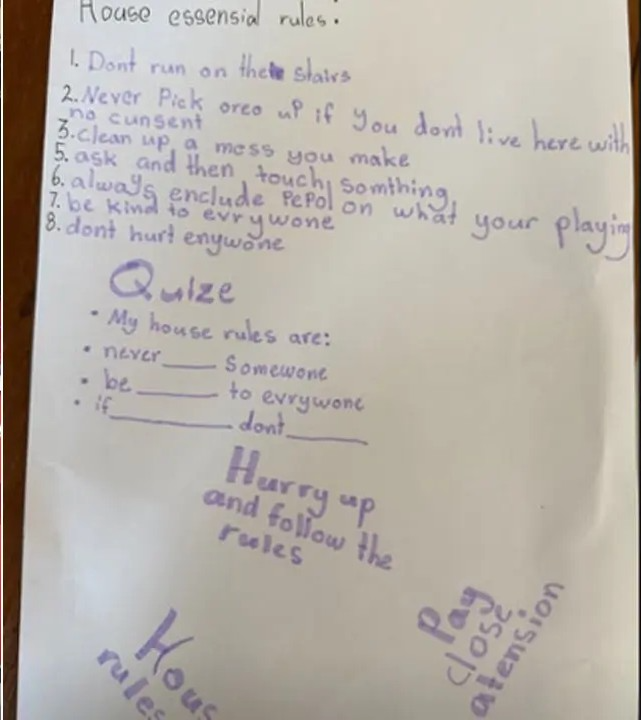 House essensial rules.
1. Dont run on the stairs
2. Never Pick oreo up if you dont live here with
no cunsent
3. clean up a mess you make
5. ask and then touch somthing
6. always enclude PePol on what your playing
7. be kind to evrywone
8. dont hurt enywone
Quize
• My house rules are:
• never____ Somewone
• be______ to evrywone
• if_________ dont______
Hurry up
and follow the
rules
Pay
close
atension
Hous
rules